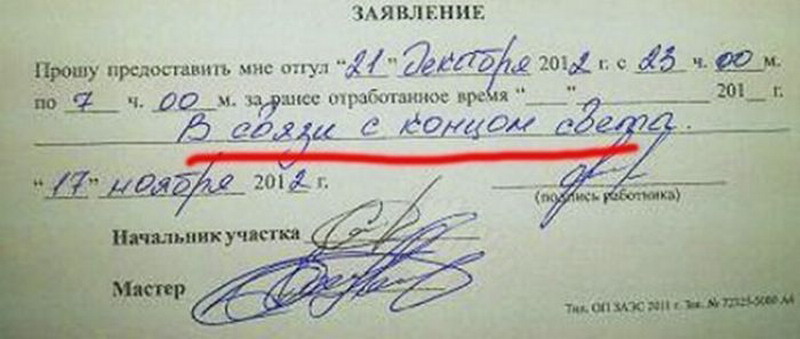 ЗАЯВЛЕНИЕ
Прошу предоставить мне отгул "21" Декабря 2012 г. с 23 ч. 00 м.
по 7 ч. 00 м. за ранее отработанное время "___" ________ 201__ г.
В связи с концом света.
"17" ноября 2012 г.
(подпись работника)
Начальник участка
Мастер
Тип. ОП ЗАЭС 2011 г. Зак. № 72325-5000 А6